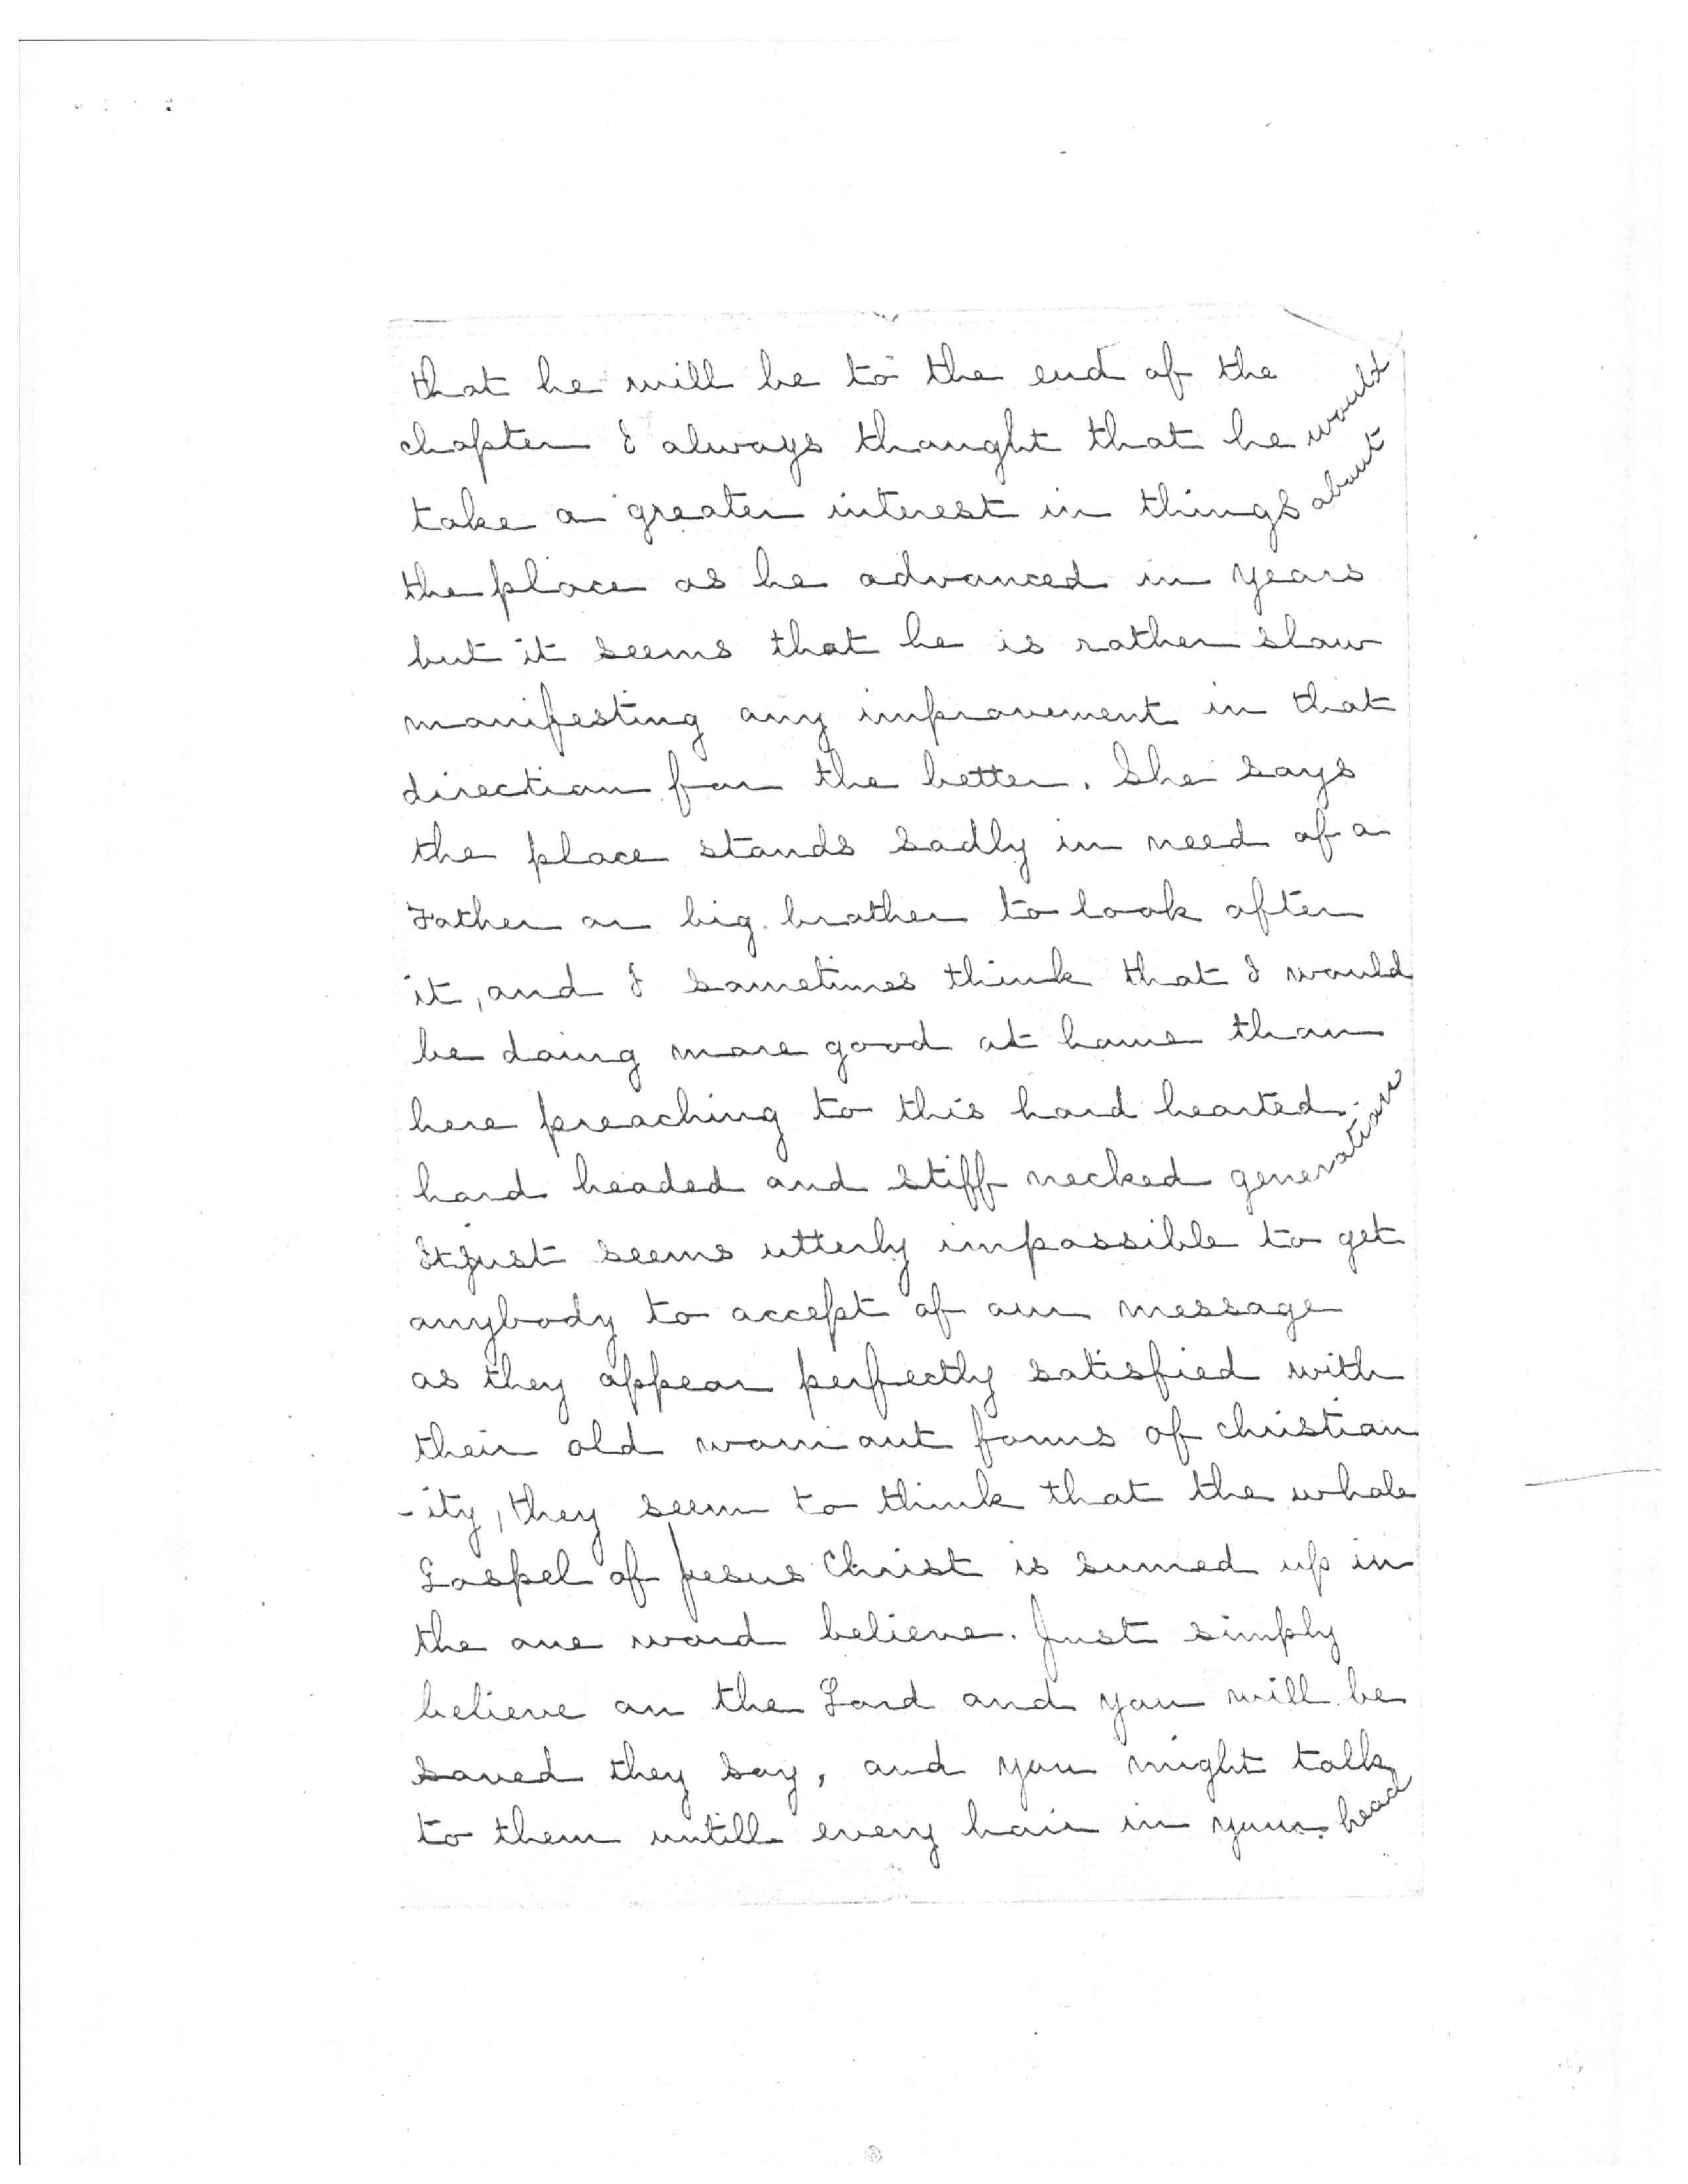 that he will be to the end of the
chapter I always thought that he would
take a greater interest in things about
the place as he advanced in years
but it seems that he is rather slow
manifesting any improvement in that
direction for the better. She says
the place stands sadly in need of a
Father or big brother to look after
it, and I sometimes think that I would
be doing more good at home than
here preaching to this hard hearted
hard headed and stiff necked generation
It just seems utterly impossible to get
anybody to accept of our message
as they appear perfectly satisfied with
their old worn out forms of christian
-ity, they seem to think that the whole
Gospel of Jesus Christ is sumed up in
the one word believe. Just simply
believe on the Lord and you will be
saved they say, and you might talk
to them untill every hair in your head